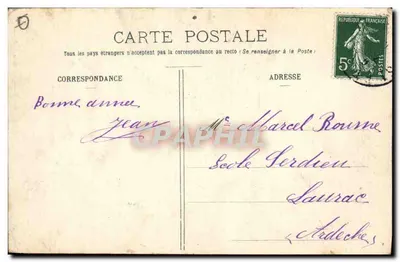 CARTE POSTALE
Tous les pays étrangers n'acceptent pas la correspondance au recto (Se renseigner à la Poste)
CORRESPONDANCE
ADRESSE
REPUBLIQUE FRANÇAISE
5c
POSTES
Bonne année
Jean
Mr Marcel Roume
Ecole Serdieu
Laurac
Ardèche